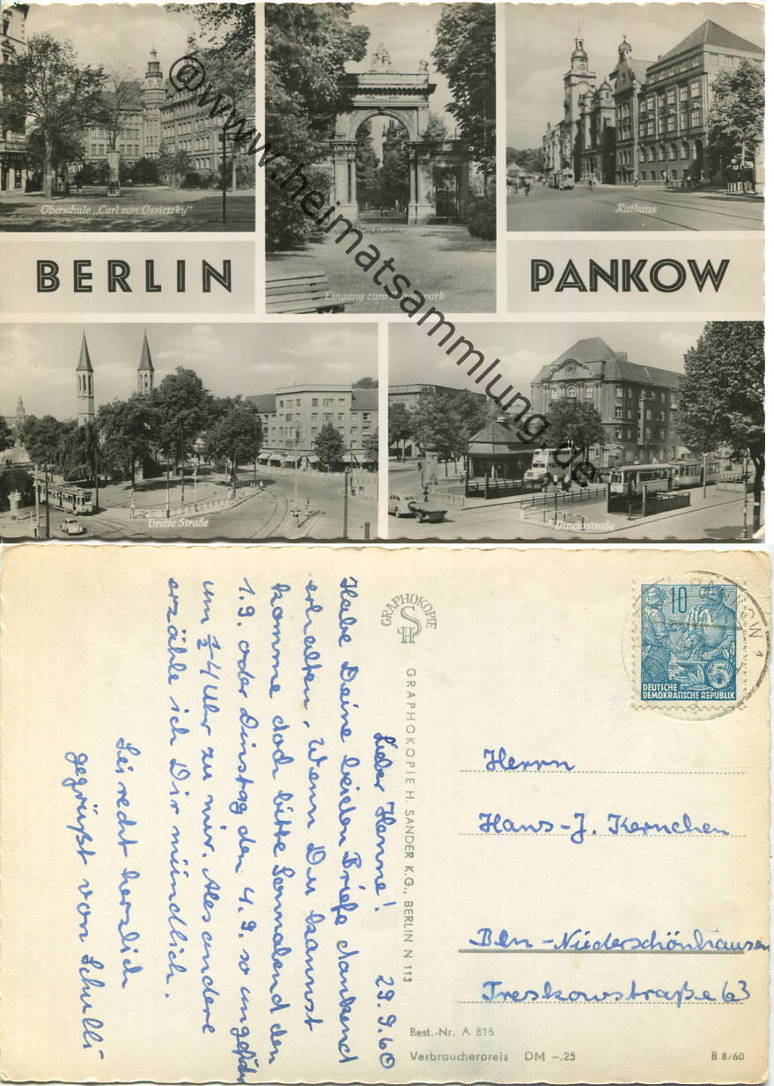 Oberschule „Carl von Ossietzky"
Rathaus
BERLIN
PANKOW
Eingang zum
park
Breite Straße
Dinetastraße
@www.heimatsammlung.de
GRAPHOKOPIE
H S
10
DEUTSCHE
DEMOKRATISCHE REPUBLIK
Lieber Henne! 29.9.60
Habe Deine beiden Briefe dankend
erhalten. Wenn Du kannst
komme doch bitte Sonnabend den
1.9. oder Dinstag den 4.9. so ungefähr
um ½ 4 Uhr zu mir. Alles andere
erzähle ich Dir mündlich.
Sei recht herzlich
gegrüßt von Schulli
GRAPHOKOPIE H. SANDER K.G., BERLIN N 113
Herrn
Hans-J. Kernchen
Bln-Niederschönhausen
Treskowstraße 63
Best.-Nr. A 815
Verbraucherpreis DM -,25
B 8/60